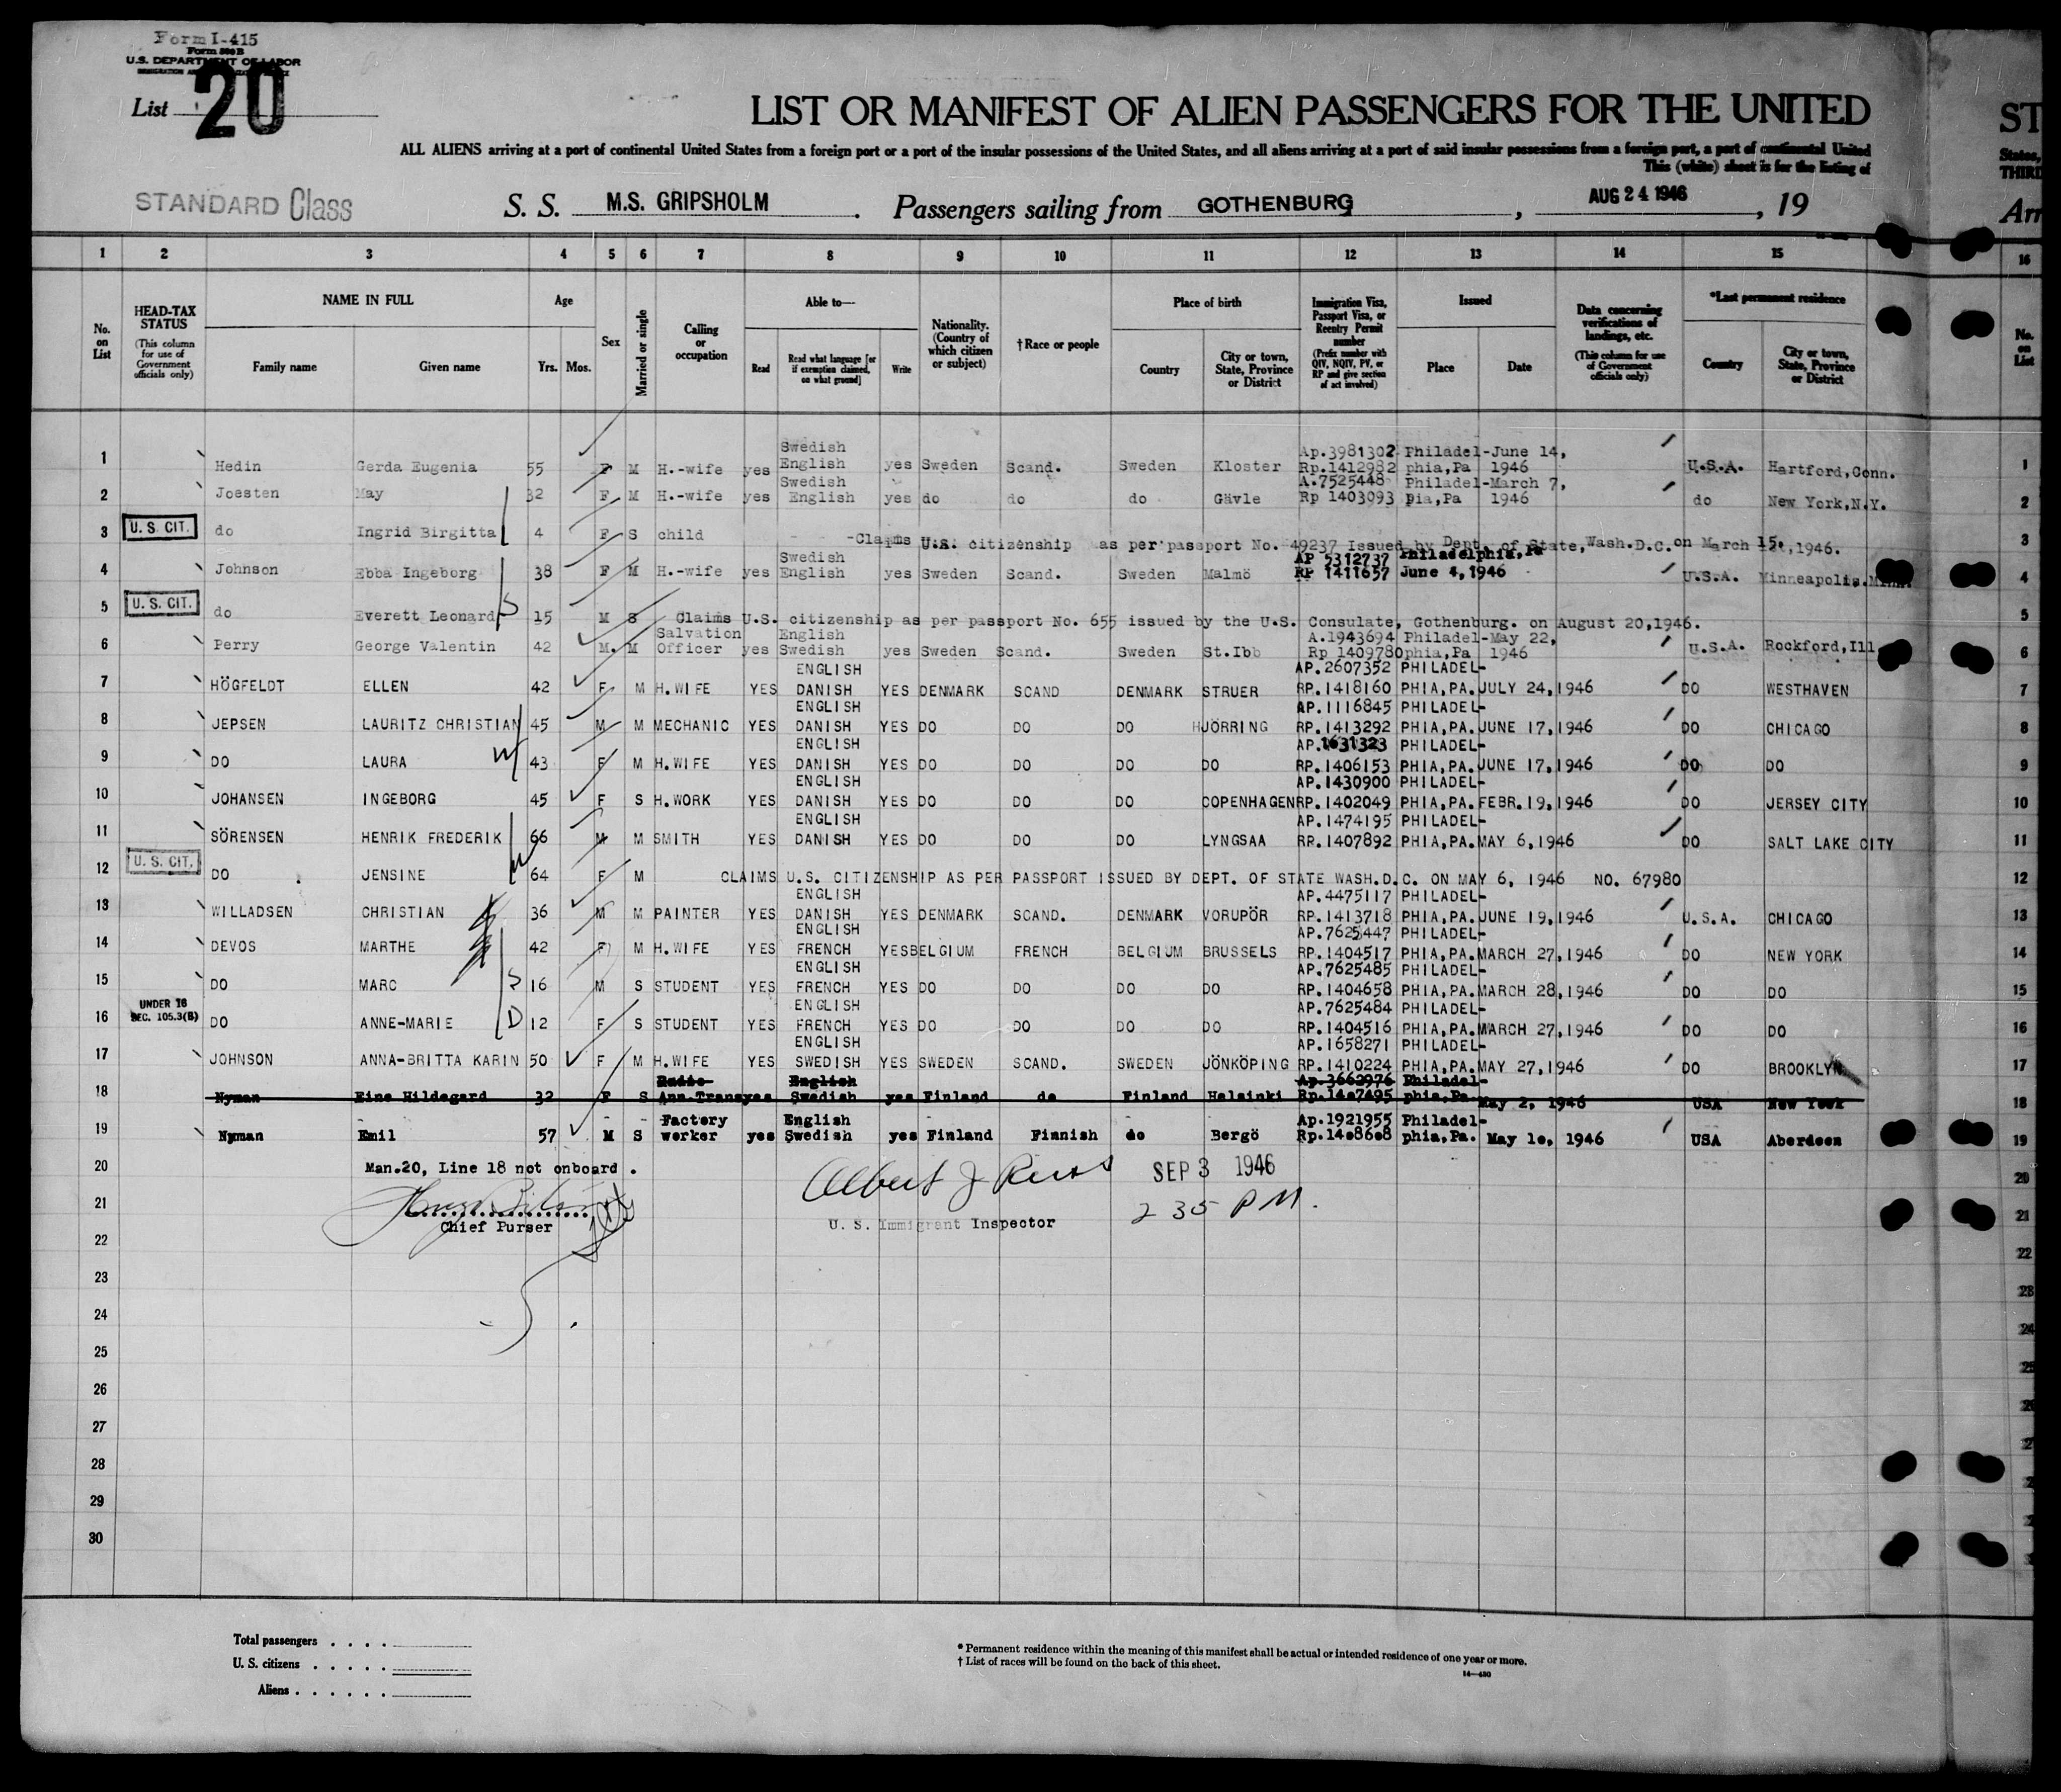 Form I-415
Form 500 B
U.S. DEPARTMENT OF LABOR
List 20
LIST OR MANIFEST OF ALIEN PASSENGERS FOR THE UNITED
ST
ALL ALIENS arriving at a port of continental United States from a foreign port or a port of the insular possessions of the United States, and all aliens arriving at a port of said insular possessions from a foreign port, a port of continental United
States,
This (white) sheet is for the listing of
THIRD
STANDARD Class S. S. M.S. GRIPSHOLM . Passengers sailing from GOTHENBURG , AUG 24 1946 , 19
Arr
1 2 3 4 5 6 7 8 9 10 11 12 13 14 15 16
No. on List
HEAD-TAX STATUS (This column for use of Government officials only)
NAME IN FULL
Family name Given name
Age
Yrs. Mos.
Sex
Married or single
Calling or occupation
Able to—
Read Read what language [or if exemption claimed, on what ground] Write
Nationality. (Country of which citizen or subject)
†Race or people
Place of birth
Country City or town, State, Province or District
Immigration Visa, Passport Visa, or Reentry Permit number (Prefix number with QIV, NQIV, PV, or RP and give section of act involved)
Issued
Place Date
Data concerning verifications of landings, etc. (This column for use of Government officials only)
*Last permanent residence
Country City or town, State, Province or District
No. on List
Swedish Ap.3981302 Philadel-June 14,
1 Hedin Gerda Eugenia 55 F M H.-wife yes English yes Sweden Scand. Sweden Kloster Rp.1412982 phia,Pa 1946 U.S.A. Hartford,Conn. 1
Swedish A.7525448 Philadel-March 7,
2 Joesten May 32 F M H.-wife yes English yes do do do Gävle Rp 1403093 pia,Pa 1946 do New York,N.Y. 2
3 U. S. CIT. do Ingrid Birgitta 4 F S child - -Claims U.S. citizenship as per passport No. 49237 Issued by Dept. of State,Wash.D.C. on March 15.,1946. 3
Swedish AP 5312737 Philadelphia,Pa
4 Johnson Ebba Ingeborg 38 F M H.-wife yes English yes Sweden Scand. Sweden Malmö RP 1411657 June 4,1946 U.S.A. Minneapolis.Minn. 4
5 U. S. CIT. do Everett Leonard S 15 M S Claims U.S. citizenship as per passport No. 655 issued by the U.S. Consulate, Gothenburg. on August 20,1946. 5
Salvation English A.1943694 Philadel-May 22,
6 Perry George Valentin 42 M. M Officer yes Swedish yes Sweden Scand. Sweden St.Ibb Rp 1409780 phia,Pa 1946 U.S.A. Rockford,Ill 6
ENGLISH AP.2607352 PHILADEL-
7 HÖGFELDT ELLEN 42 F M H.WIFE YES DANISH YES DENMARK SCAND DENMARK STRUER RP.1418160 PHIA,PA. JULY 24,1946 DO WESTHAVEN 7
ENGLISH AP.1116845 PHILADEL-
8 JEPSEN LAURITZ CHRISTIAN 45 M M MECHANIC YES DANISH YES DO DO DO HJÖRRING RP.1413292 PHIA,PA. JUNE 17,1946 DO CHICAGO 8
ENGLISH AP.1631323 PHILADEL-
9 DO LAURA W 43 F M H.WIFE YES DANISH YES DO DO DO DO RP.1406153 PHIA,PA. JUNE 17,1946 DO DO 9
ENGLISH AP.1430900 PHILADEL-
10 JOHANSEN INGEBORG 45 F S H.WORK YES DANISH YES DO DO DO COPENHAGEN RP.1402049 PHIA,PA. FEBR.19,1946 DO JERSEY CITY 10
ENGLISH AP.1474195 PHILADEL-
11 SÖRENSEN HENRIK FREDERIK 66 M M SMITH YES DANISH YES DO DO DO LYNGSAA RP.1407892 PHIA,PA. MAY 6,1946 DO SALT LAKE CITY 11
12 U. S. CIT. DO JENSINE W 64 F M CLAIMS U.S. CITIZENSHIP AS PER PASSPORT ISSUED BY DEPT. OF STATE WASH.D.C. ON MAY 6, 1946 NO. 67980 12
ENGLISH AP.4475117 PHILADEL-
13 WILLADSEN CHRISTIAN 36 M M PAINTER YES DANISH YES DENMARK SCAND. DENMARK VORUPÖR RP.1413718 PHIA,PA. JUNE 19,1946 U.S.A. CHICAGO 13
ENGLISH AP.7625447 PHILADEL-
14 DEVOS MARTHE 42 F M H.WIFE YES FRENCH YES BELGIUM FRENCH BELGIUM BRUSSELS RP.1404517 PHIA,PA. MARCH 27,1946 DO NEW YORK 14
ENGLISH AP.7625485 PHILADEL-
15 DO MARC S 16 M S STUDENT YES FRENCH YES DO DO DO DO RP.1404658 PHIA,PA. MARCH 28,1946 DO DO 15
UNDER 16 ENGLISH AP.7625484 PHILADEL-
16 SEC. 105.3(B) DO ANNE-MARIE D 12 F S STUDENT YES FRENCH YES DO DO DO DO RP.1404516 PHIA,PA. MARCH 27,1946 DO DO 16
ENGLISH AP.1658271 PHILADEL-
17 JOHNSON ANNA-BRITTA KARIN 50 F M H.WIFE YES SWEDISH YES SWEDEN SCAND. SWEDEN JÖNKÖPING RP.1410224 PHIA,PA. MAY 27,1946 DO BROOKLYN 17
Radio- English Ap.3662976 Philadel-
18 Nyman Eine Hildegard 32 F S Ann.Trans yes Swedish yes Finland do Finland Helsinki Rp.14o7495 phia,Pa. May 2, 1946 USA New York 18
Factory English Ap.1921955 Philadel-
19 Nyman Emil 57 M S worker yes Swedish yes Finland Finnish do Bergö Rp.14o86o8 phia,Pa. May 1o, 1946 USA Aberdeen 19
20 Man.20, Line 18 not onboard . SEP 3 1946 20
21 2 35 P M. 21
Chief Purser U. S. Immigrant Inspector
22 22
23 23
24 24
25 25
26
27
28
29
30
Total passengers . . . .
U. S. citizens . . . . .
Aliens . . . . . .
* Permanent residence within the meaning of this manifest shall be actual or intended residence of one year or more.
† List of races will be found on the back of this sheet.
14—430